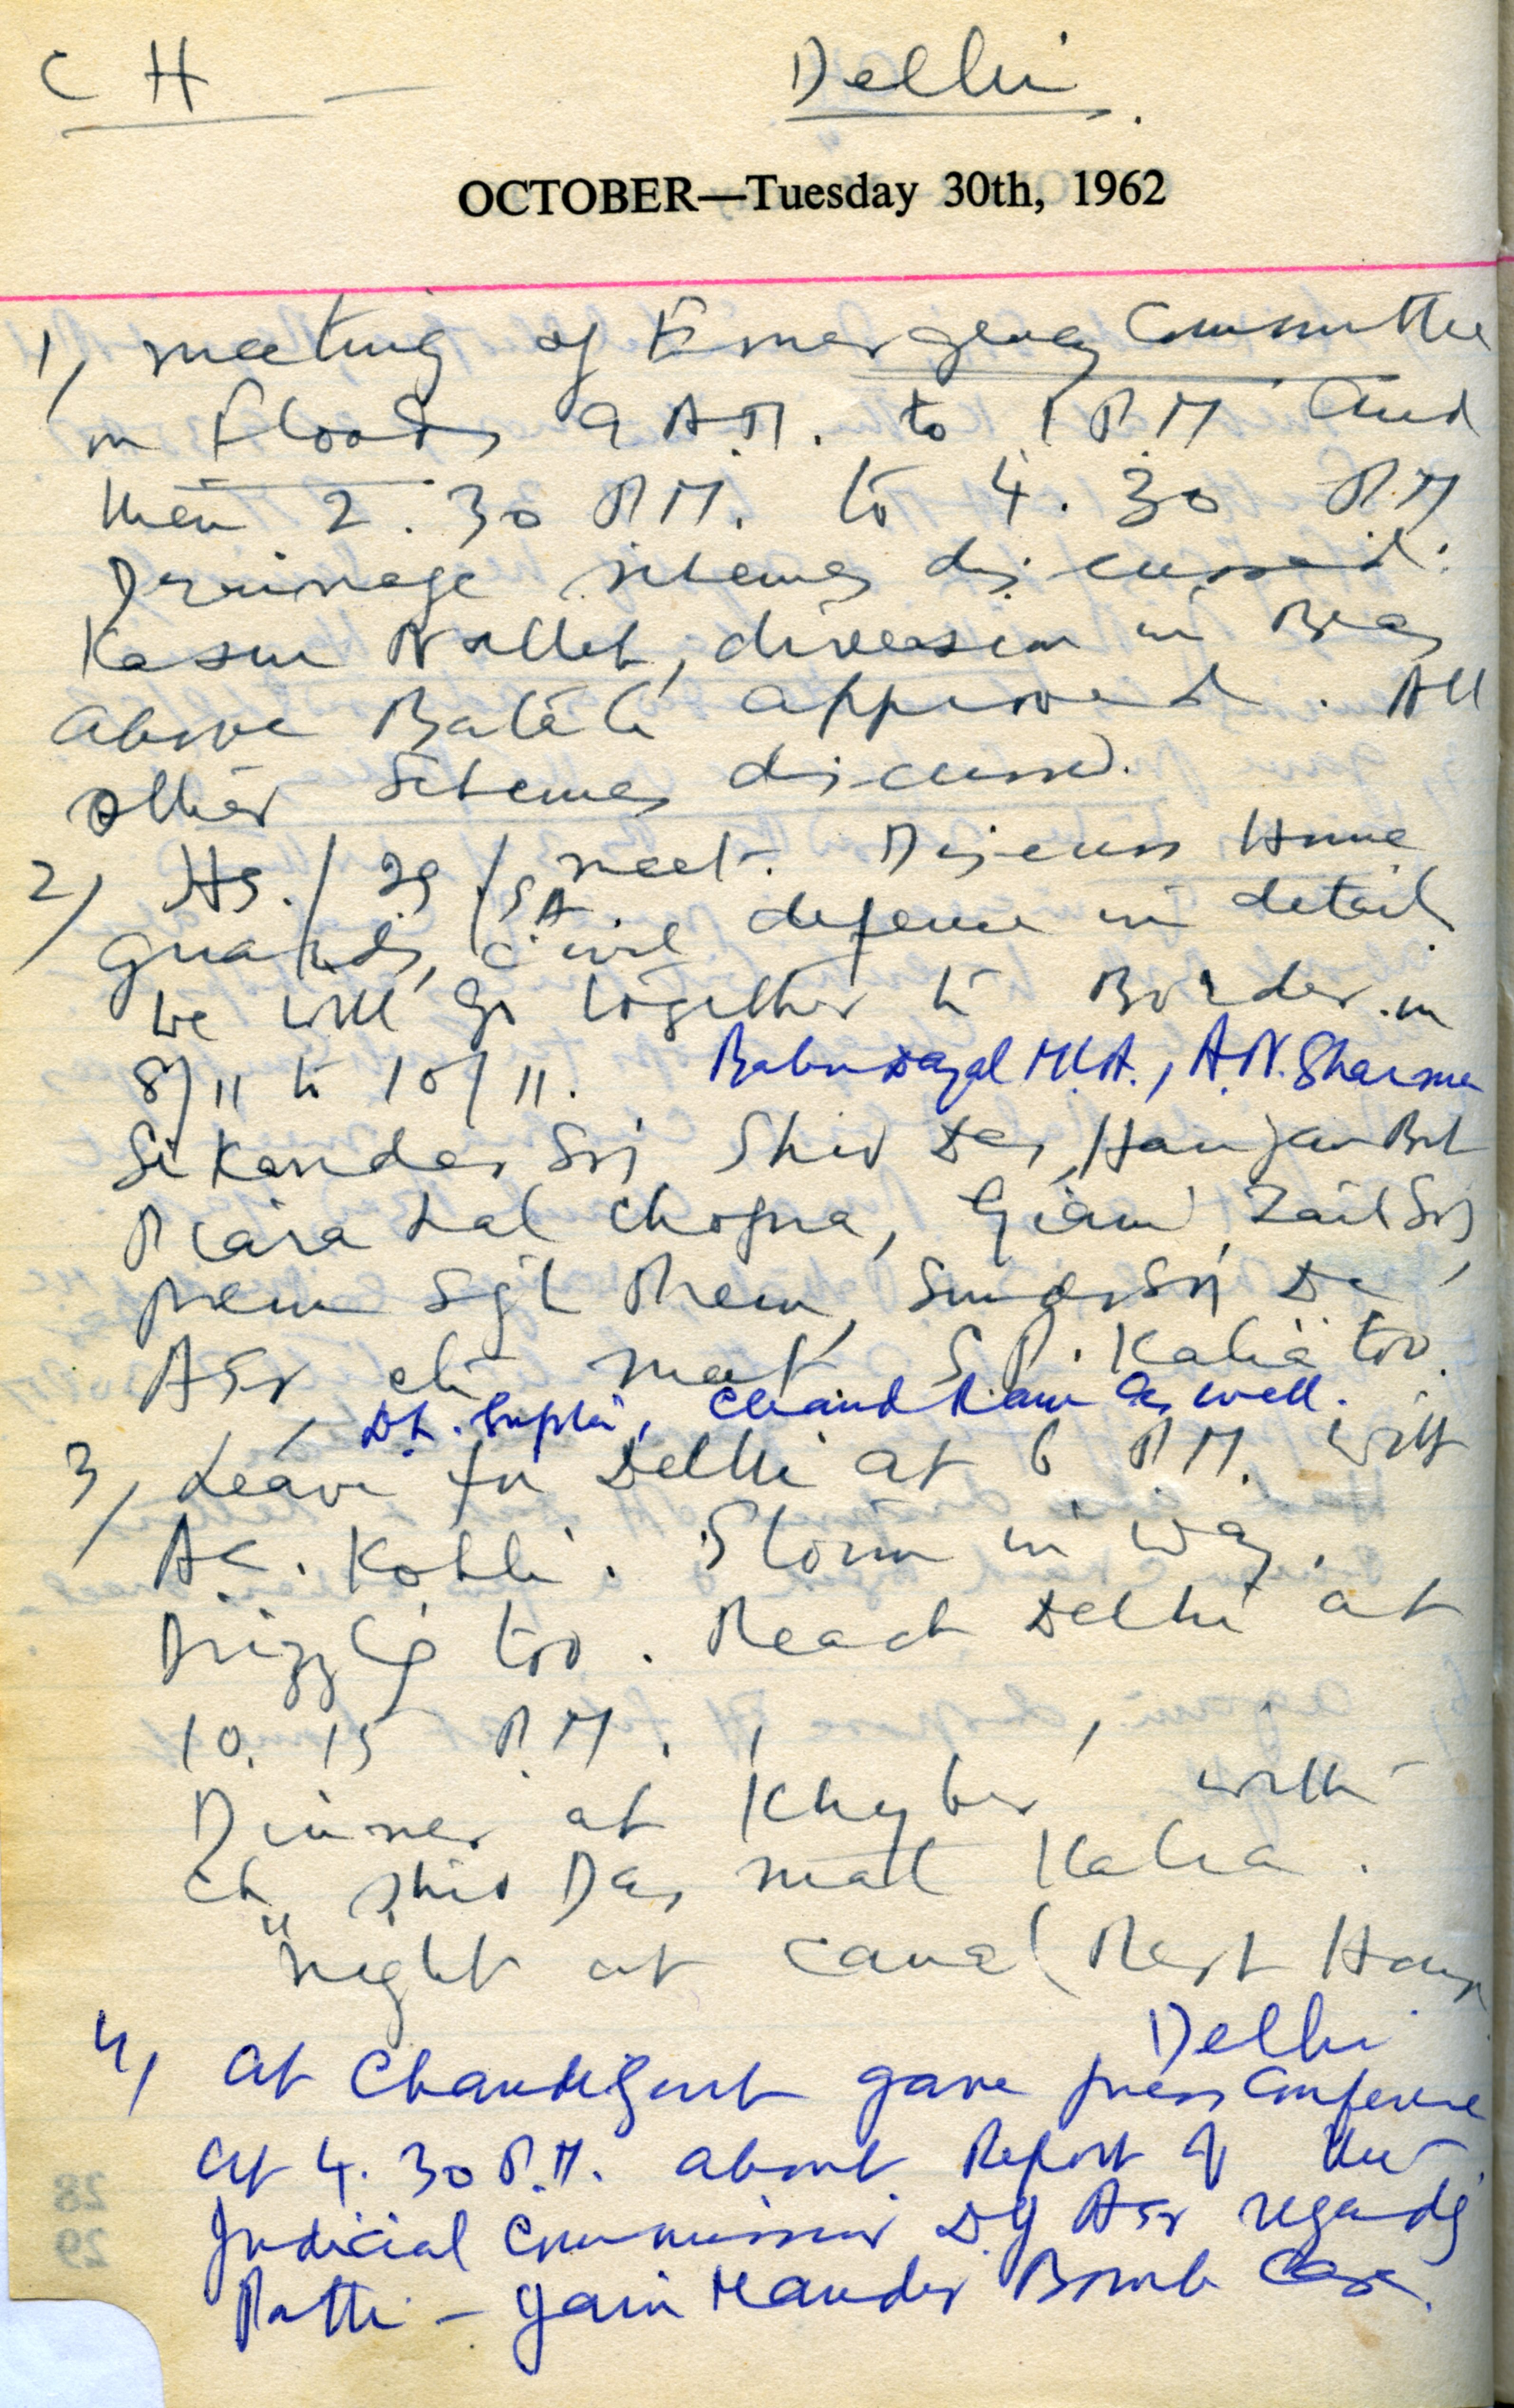 C H — Delhi.
OCTOBER—Tuesday 30th, 1962
1, meeting of Emergency Committee
on Floods 9 A.M. to 1 P.M and
then 2.30 P.M. to 4.30 P.M
Drainage schemes discussed.
Kasur Nallah, diversion in Beas
above approved. All
other Schemes discussed.
2, HS./IG/SA meet. Discuss Home
guards, Civil defence in detail.
We will go together to Border on
8/11 to 10/11. Babu Dayal M.L.A., A.N. Sharma
Sikander Shiv Das,
Piara Lal Chopra, Giani Zail
Prem Sgh Prem,
Asr etc meet, S.P. Kalia too.
Chand Ram as well.
3, Leave for Delhi at 6 P.M. with
A.C. Kohli. Storm in way.
Drizzlg too. Reach Delhi at
10.15 P.M.
Dinner at 'Khyber' with
Ch Shiv Das and Kalia.
night at Canal Rest House
Delhi
4, At Chandigarh gave press Conference
at 4.30 P.M. about Report of the
Judicial Commission Asr regardg
Patti – Jain Mander Bomb Case.